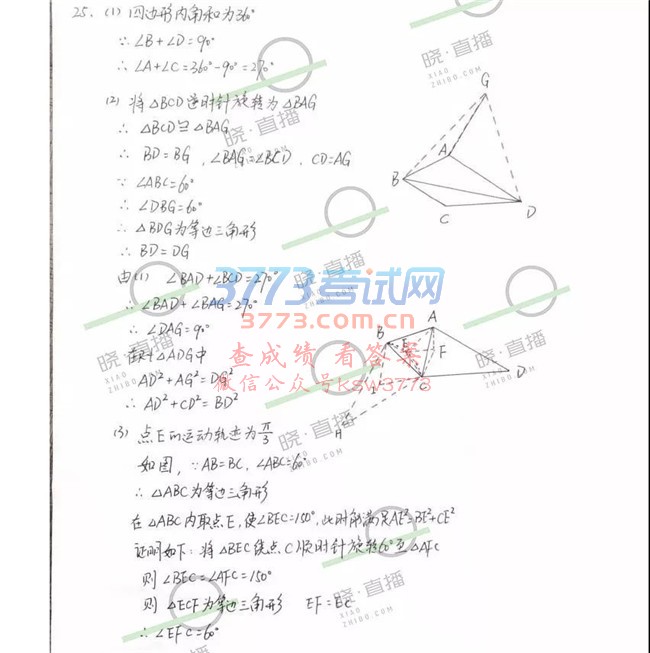 25. (1) 四边形内角和为360°
∴ ∠B+∠D=90°
∴ ∠A+∠C=360°-90°=270°
(2) 将△BCD逆时针旋转为△BAG
∴ △BCD≌△BAG
∴ BD=BG, ∠BAG=∠BCD, CD=AG
∵ ∠ABC=60°
∴ ∠DBG=60°
∴ △BDG为等边三角形
∴ BD=DG
由(1) ∠BAD+∠BCD=270°
∴ ∠BAD+∠BAG=270°
∴ ∠DAG=90°
在Rt△ADG中
AD²+AG²=DG²
∴ AD²+CD²=BD²
(3) 点E的运动轨迹为π/3
如图, ∵ AB=BC, ∠ABC=60°
∴ △ABC为等边三角形
在△ABC内取点E, 使∠BEC=150°, 此时能满足AE²=BE²+CE²
证明如下: 将△BEC绕点C顺时针旋转60°至△AFC
则 ∠BEC=∠AFC=150°
则 △ECF为等边三角形 EF=EC
∴ ∠EFC=60°
G
A
B
C
D
A
B
E
F
C
D
H
3773考试网
3773.com.cn
查成绩 看答案
微信公众号ksw3773
晓·直播
XIAO
ZHIBO.COM